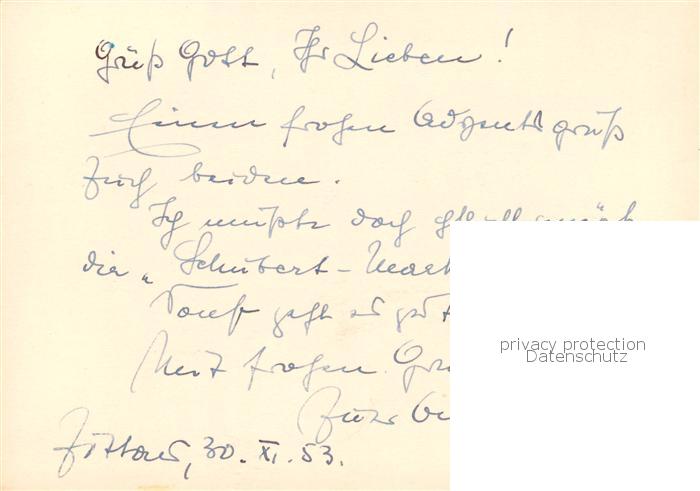 Grüß Gott, Ihr Lieben!
Einen frohen Adventsgruß
Euch beiden.
Ich mußte doch
die „Schubert-
Sonst geht es gut
Mit frohen
Eure
Zittau, 30. XI. 53.
privacy protection
Datenschutz